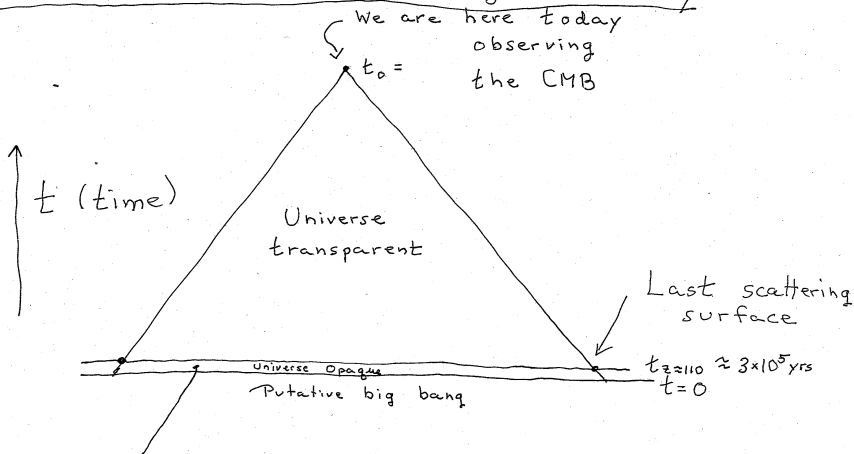 We are here today
observing
the CMB
t₀ =
t (time)
Universe
transparent
Last scattering
surface
Universe Opaque
t_z≈110 ≈ 3×10⁵ yrs
t=0
Putative big bang